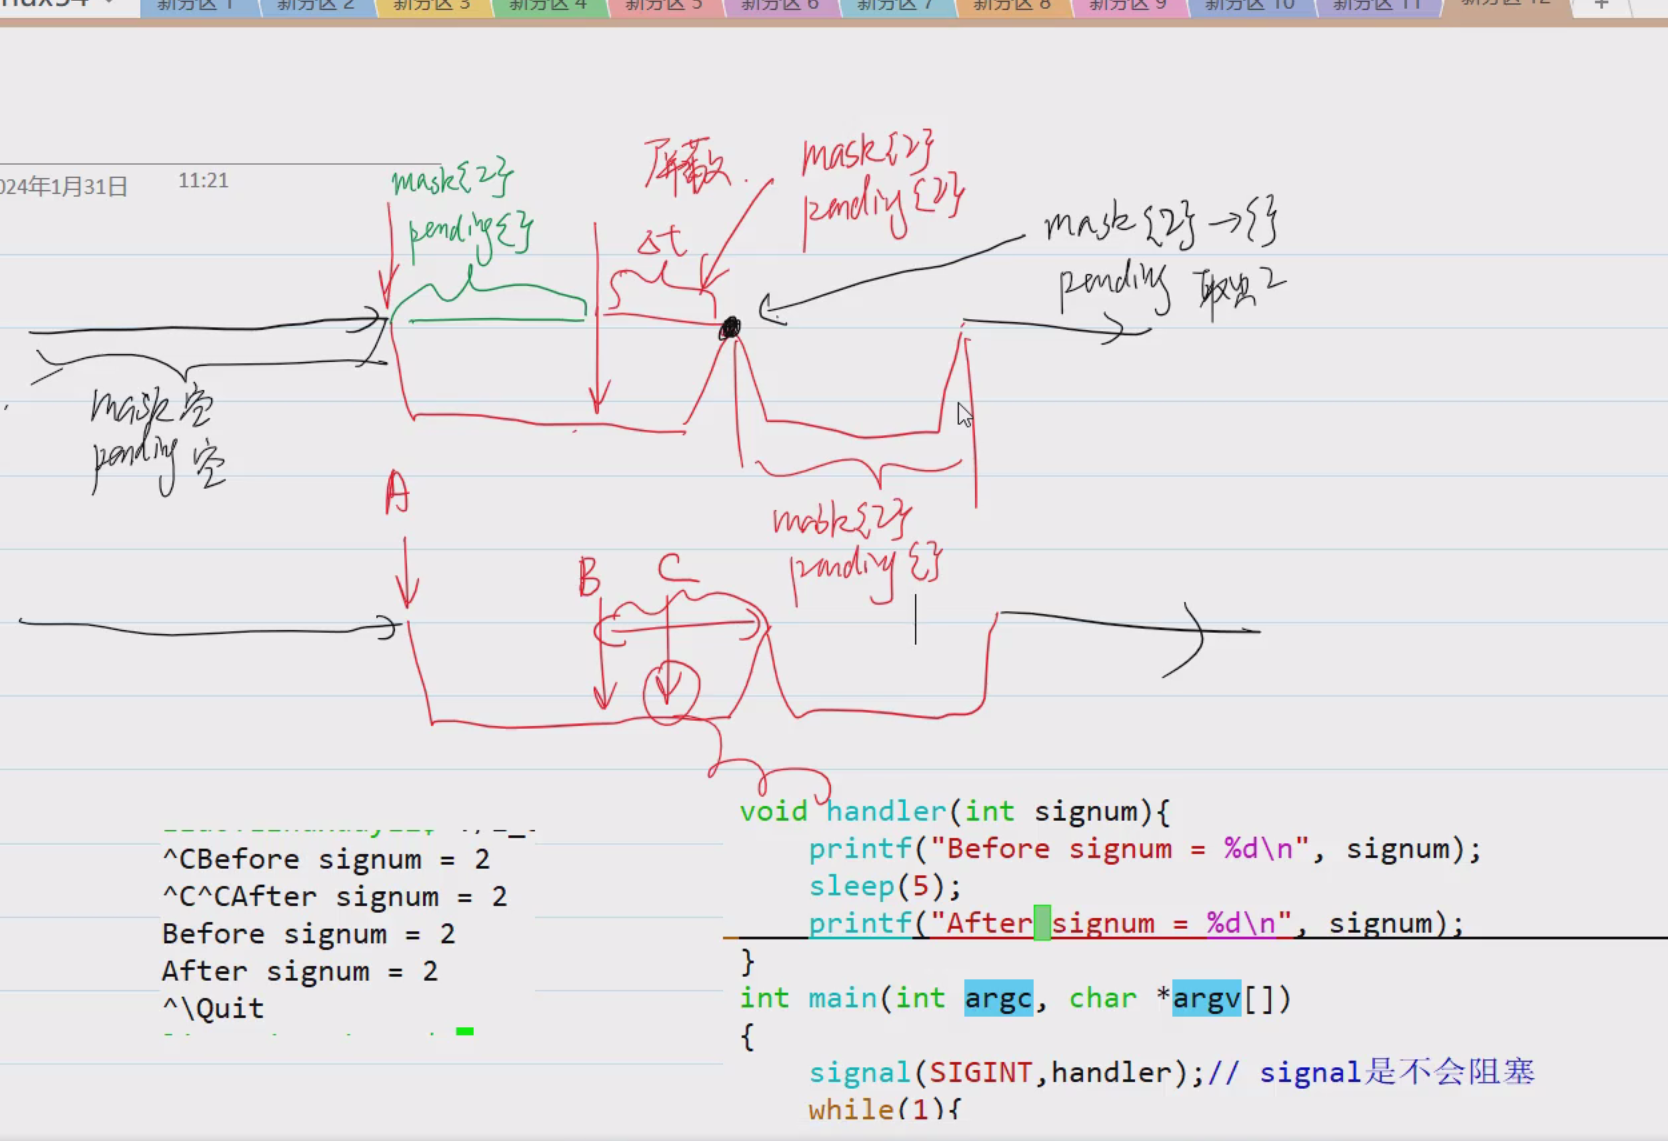 新分区 1 新分区 2 新分区 3 新分区 4 新分区 5 新分区 6 新分区 7 新分区 8 新分区 9 新分区 10 新分区 11 新分区 12 +
024年1月31日 11:21
mask{2}
pending{}
屏蔽
Δt
mask{2}
pending{2}
mask{2}→{}
pending 取出2
mask空
pending空
mask{2}
pending{}
A
B
C
^CBefore signum = 2
^C^CAfter signum = 2
Before signum = 2
After signum = 2
^\Quit
void handler(int signum){
printf("Before signum = %d\n", signum);
sleep(5);
printf("After signum = %d\n", signum);
}
int main(int argc, char *argv[])
{
signal(SIGINT,handler);// signal是不会阻塞
while(1){